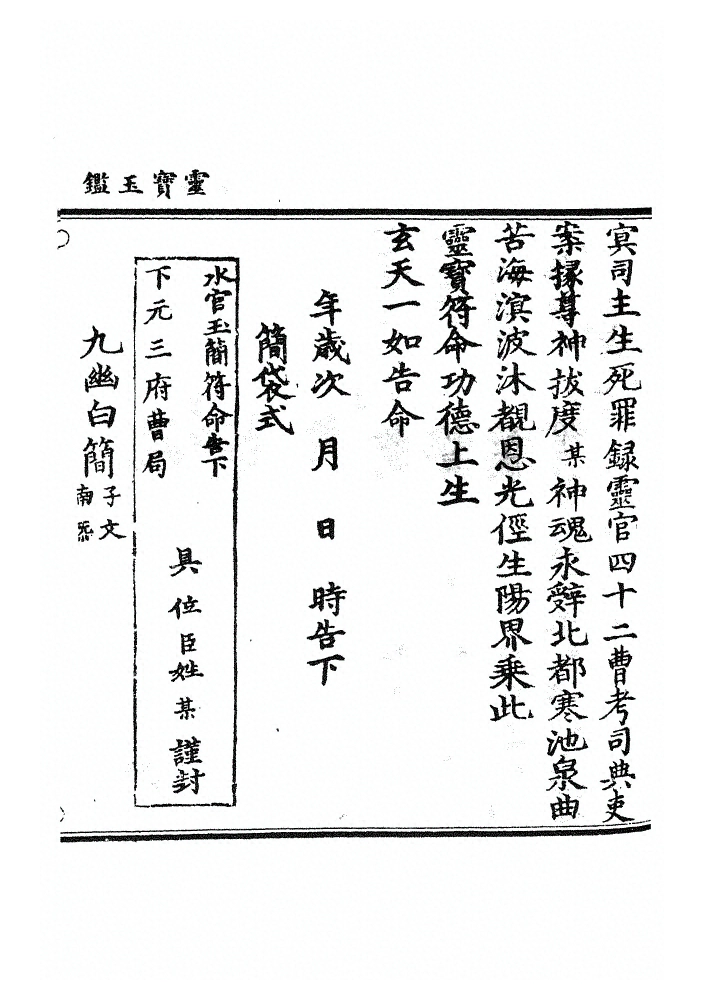 靈寶玉鑑
寞司主生死罪録靈官四十二曹考司典吏
案掾尊神拔度某神魂永辭北都寒池泉曲
苦海溟波沐覩恩光徑生陽界乗此
靈寶符命功德上生
玄天一如告命
年歲次月日時告下
簡袋式
水官玉簡符命告下
下元三府曹局
具位臣姓某謹封
九幽白簡
子文
南炁